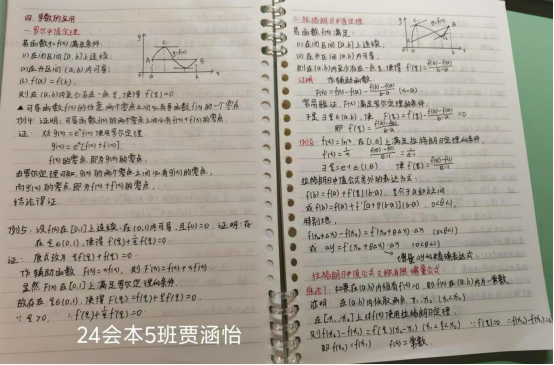 四. 导数的应用
一. 罗尔中值定理
若函数y=f(x)满足条件
(1) 在闭区间[a,b]上连续
(2) 在开区间(a,b)内可导
(3) f(a)=f(b),
则在(a,b)内至少存在一点ξ,使得f'(ξ)=0
▲可导函数f(x)的任意两个零点之间必有导函数f'(x)的一个零点
证: 对g(x)=e^x f(x)使用罗尔定理
g'(x)=e^x[f(x)+f'(x)],
f(x)的零点即为g(x)的零点,
由罗尔定理可知,g(x)的两个零点之间必有g'(x)的零点,
而g'(x)的零点即为f(x)+f'(x)的零点,
结论得证.
例5: 设f(x)在[0,1]上连续,在(0,1)内可导,且f(1)=0,证明:存
在ξ∈(0,1),使得f'(ξ)+\frac{1}{ξ}f(ξ)=0
证: 原式改为ξf'(ξ)+f(ξ)=0
作辅助函数F(x)=xf(x),则F'(x)=f(x)+xf'(x)
显然F(x)在[0,1]上满足罗尔定理的条件,
故存在ξ∈(0,1),使得F'(ξ)=f(ξ)+ξf'(ξ)=0
∵ξ>0 ∴f'(ξ)+\frac{1}{ξ}f(ξ)=0
24会本5班贾涵怡
二. 拉格朗日中值定理
若函数f(x)满足:
(1) 在闭区间[a,b]上连续
(2) 在开区间(a,b)内可导
则在(a,b)内至少存在一点ξ,使得f'(ξ)=\frac{f(b)-f(a)}{b-a}
证明: 作辅助函数
F(x)=f(x)-f(a)-\frac{f(b)-f(a)}{b-a}(x-a)
容易验证,F(x)满足罗尔定理条件,
即f'(ξ)=\frac{f(b)-f(a)}{b-a}
拉格朗日中值公式另外的表达方式:
f(b)=f(a)+f'(ξ)(b-a),ξ介于a和b之间
或f(b)=f(a)+f'[a+θ(b-a)](b-a),0<θ<1,
特别地,
f(x₀+Δx)-f(x₀)=f'(x₀+θΔx)·Δx (0<θ<1)
或Δy=f'(x₀+θΔx)·Δx (0<θ<1)
增量Δy的精确表达式
拉格朗日中值公式又称有限增量公式
推论1: 如果在(a,b)内恒有f'(x)=0,即f(x)在(a,b)内为一常数
证明: 在(a,b)内任取两点x₁,x₂(x₁<x₂)
在[x₁,x₂]上对f(x)使用拉格朗日定理,
即f(x₂)=f(x₁) f(x)=常数